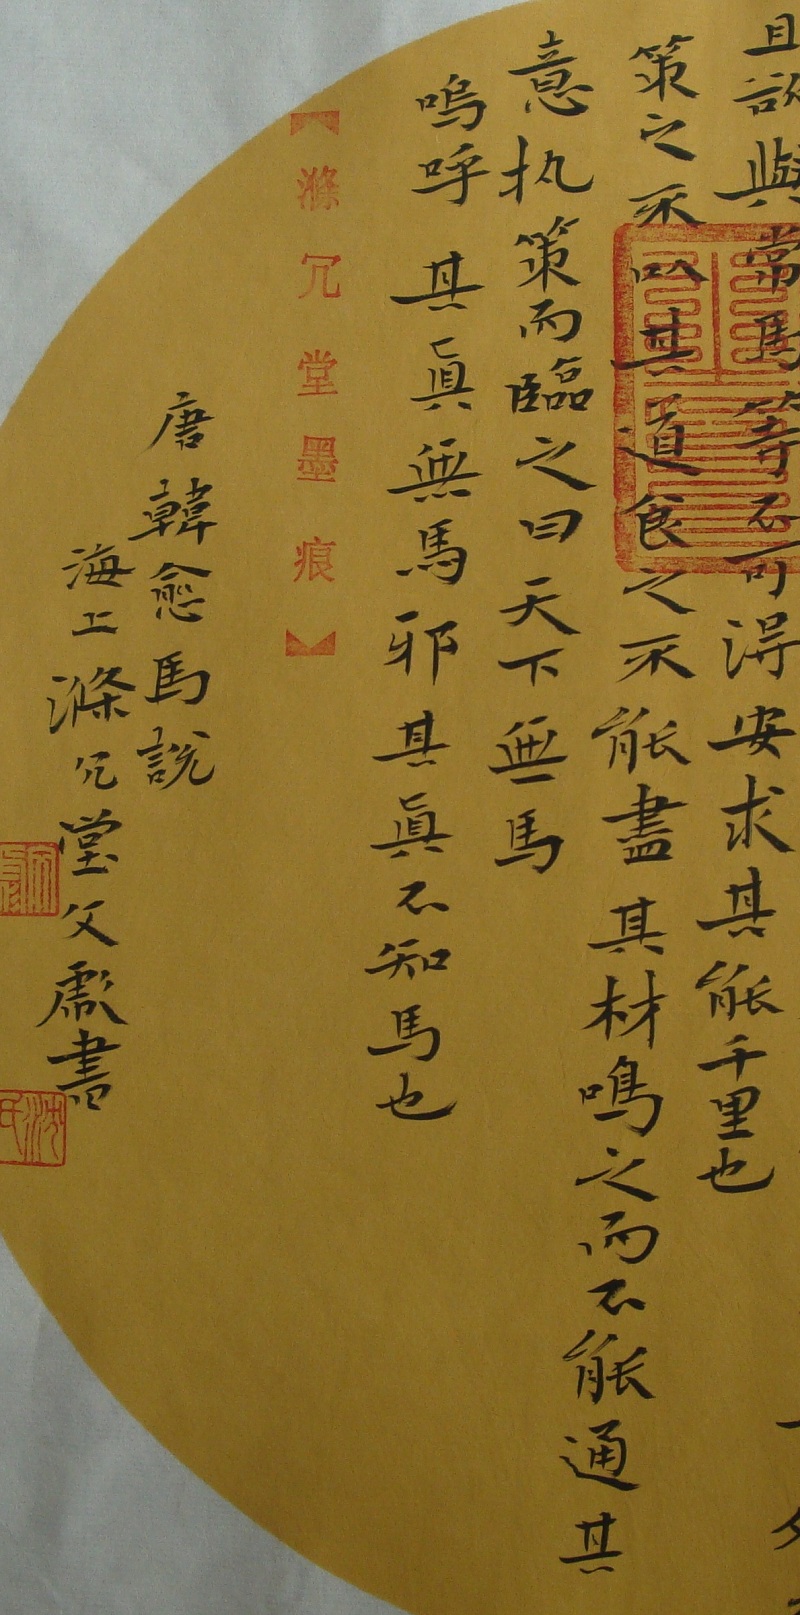 且欲與常馬等不可得安求其能千里也
策之不以其道食之不能盡其材鳴之而不能通其
意執策而臨之曰天下無馬
嗚呼其真無馬邪其真不知馬也
【滌冗堂墨痕】
唐韓愈馬說
海上滌冗堂父獻書